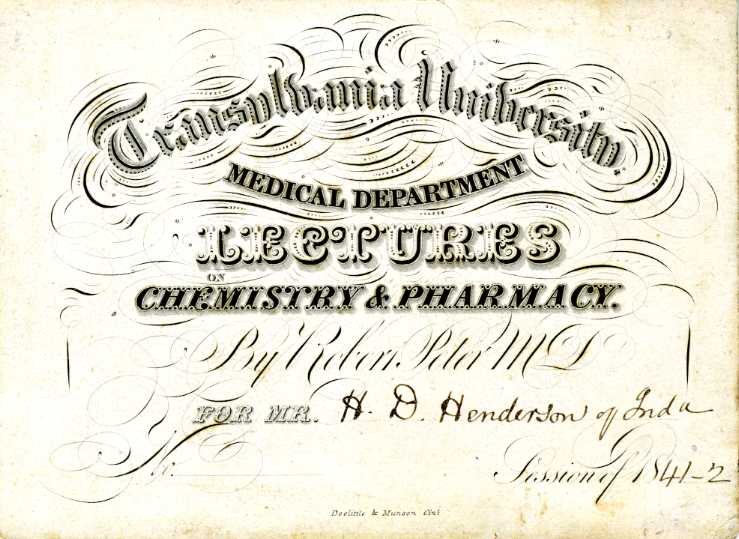 Transylvania University.
MEDICAL DEPARTMENT
LECTURES
ON
CHEMISTRY & PHARMACY.
By Robert Peter M D
FOR MR. H. D. Henderson of Inda
No.
Session of 1841-2
Doolittle & Munson Cin!